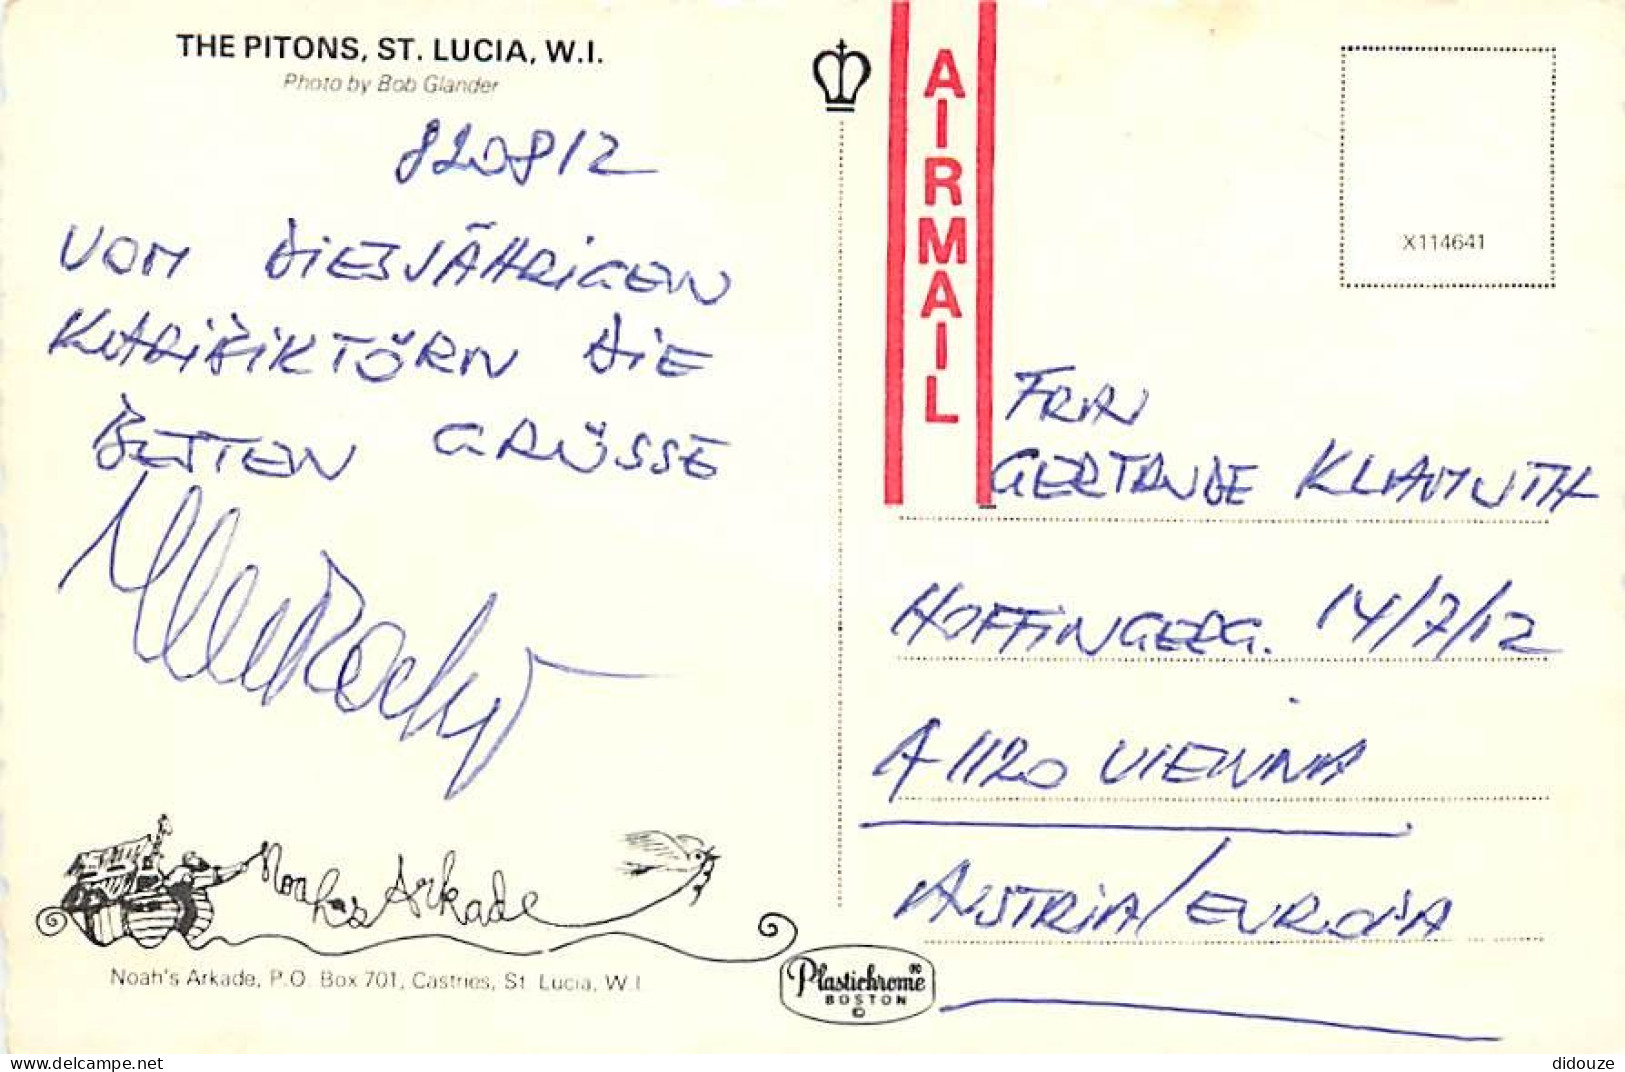 THE PITONS, ST. LUCIA, W.I.
Photo by Bob Glander
820812
VOM DIESJÄHRIGEN
KARIBIKTÖRN DIE
BESTEN GRÜSSE
Noah's Arkade
Noah's Arkade, P.O. Box 701, Castries, St. Lucia, W.I.
AIRMAIL
X114641
FRAU
GERTRUDE KLIAMUTH
HOFFINGERG. 14/7/12
A 1120 VIENNA
AUSTRIA/EUROPA
Plastichrome®
BOSTON
©
didouze